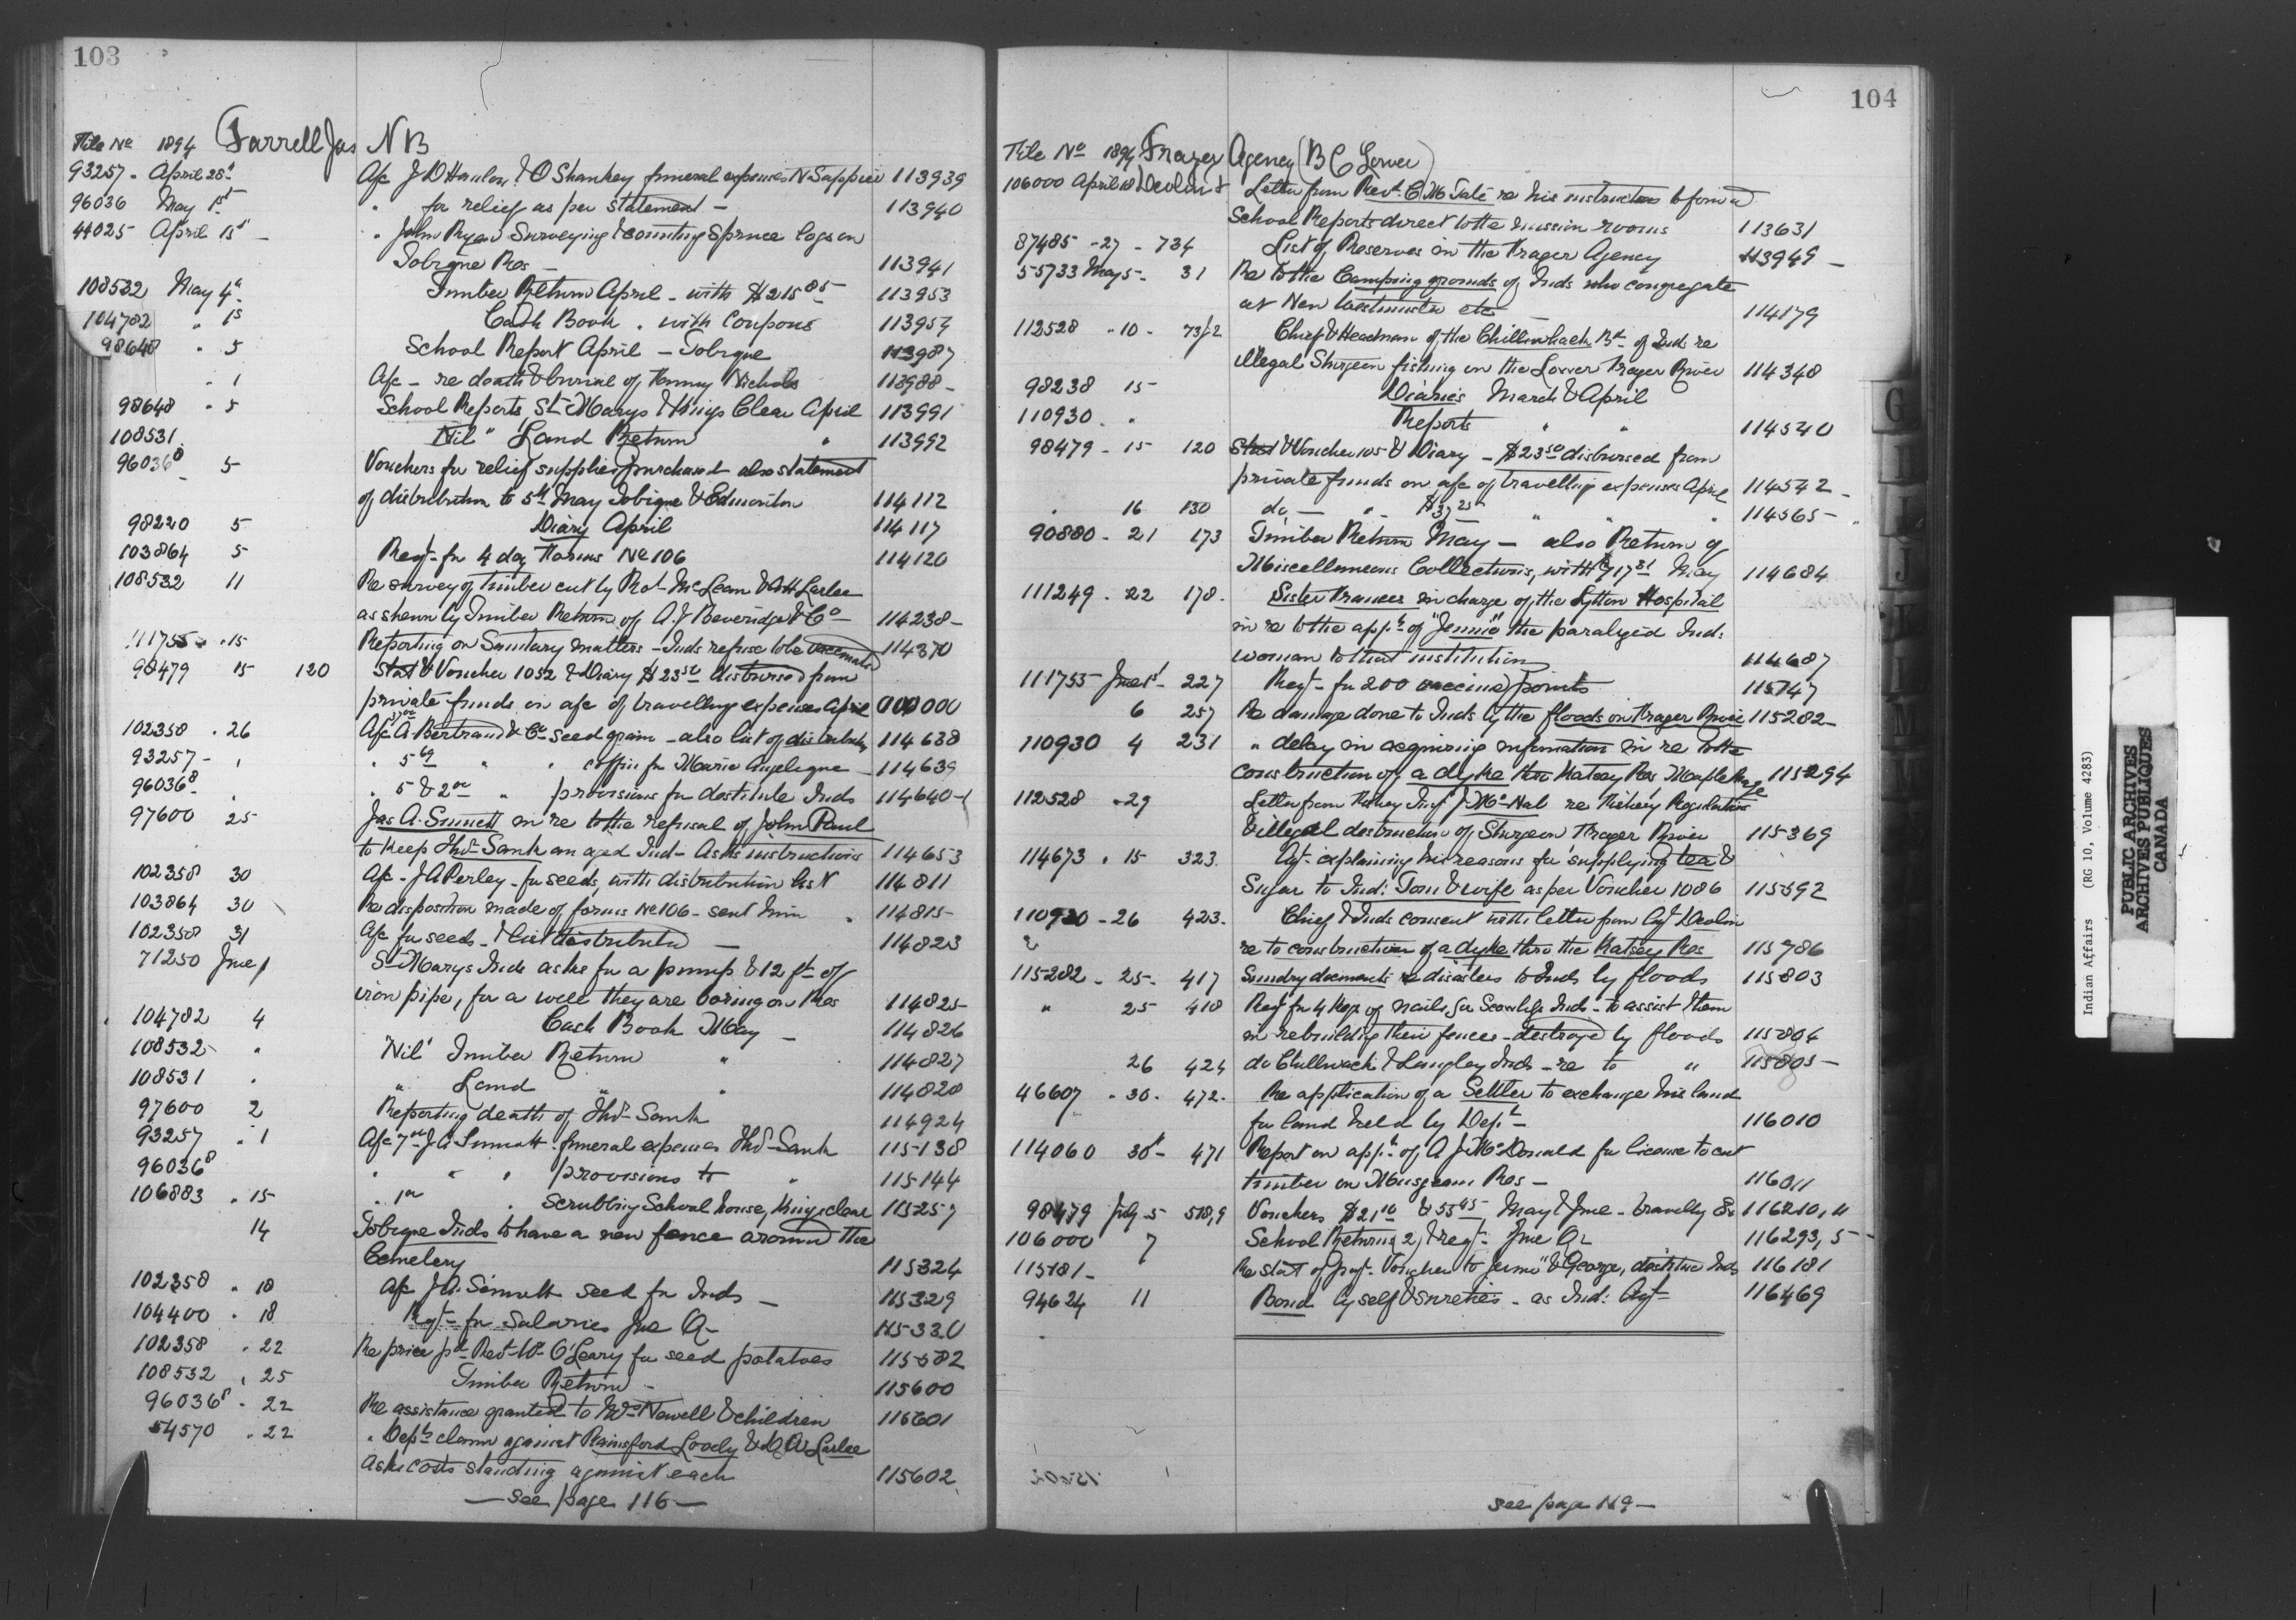 103
File No 1894 Farrell Jas N B
93257 - April 28 A/c J D Hanlon & O Shankey funeral expenses N Sappier 113939
96036 May 1st " for relief as per statement - 113940
44025 April 13 - " John Ryan Surveying & counting Spruce logs on
Tobique Res - 113941
108532 May 4 Timber Return April - with $215 85 113953
104782 " 1s Cash Book . with Coupons 113954
98648 " 5 School Report April - Tobique 113987
" 1 A/c - re death & burial of Tommy Nichols 113988 -
98648 " 5 School Reports, St Marys & Kings Clear April 113991
108531 "Nil" Land Return " 113992
96036 8 5 Vouchers for relief supplies purchased also statement
of distribution to 5th May Tobique & Edmonton 114112
98220 5 Diary April 114117
103864 5 Reqt - for 4 doz Forms No 106 114120
108532 11 Re survey of timber cut by Robt McLean & Larlee
as shewn by Timber Return of A. J Beveridge & Co 114238 -
111755 " 15 Reporting on Sanitary matters - Inds refuse to be vaccinated 114370
98479 15 120 Stat & Voucher 1052 & Diary $23 50 disbursed from
private funds on a/c of travelling expenses April 000000
102358 " 26 A/c A. Bertrand & Co - seed grain - also list of distribution 114638
93257 - " " 5 " " coffin for Marie Angelique - 114639
96036 8 " " 5 & 2 00 " provisions for destitute Inds 114640 -
97600 25 Jas A. Sinnett in re to the refusal of John Paul
to keep Thos Sank an aged Ind - Asks instructions 114653
102358 30 A/c - J A Perley - for seeds, with distribution list 114811
103864 30 Re disposition made of forms No 106 - sent him " 114815
102358 31 A/c for seeds - & list distributed - 114823
71250 June 1 St Marys Inds asks for a pump & 12 ft of
iron pipe, for a well they are boring on Res 114825
104782 4 Cash Book May - 114826
108532 " "Nil" Timber Return " 114827
108531 " " Land " " 114828
97600 2 Reporting death of Thos Sank 114924
93257 " 1 A/c J A Sinnott funeral expenses Thos Sank 115138
96036 8 " " " provisions to " 115144
106883 " 15 " Scrubbing School house, Kingsclear 115257
14 Tobique Inds to have a new fence around the
Cemetery 115324
102358 " 18 A/c J A. Sinnott seed for Inds - 115329
104400 " 18 Reqt - for Salaries June Qr 115330
102358 " 22 Re price pd Revd Wm O'Leary for seed potatoes 115582
108532 " 25 Timber Return - 115600
96036 8 " 22 Re assistance granted to Newell & children 115601
54570 " 22 " Dept claim against Rainsford Lovely & Larlee
asks costs standing against each 115602
- see page 116 -
104
File No 1894 Frazer Agency (B C Lower)
106000 April 18 Devlin Letter from Revd. C. M Tate re his instructions to forward
School Reports direct to the mission rooms 113631
87485 - 27 - 734 List of Reserves in the Frazer Agency 113949 -
55733 May 5 - 31 Re to the Camping grounds of Inds who congregate
at New Westminster etc 114179
112528 " 10 - 73/2 Chief & Headmen of the Chilliwhack Bd of Inds re
illegal Sturgeon fishing in the Lower Frazer River 114348
98238 15 Diaries March & April
110930 " " Reports " " 114540
98479 - 15 120 Stat & Voucher 105 & Diary - $23 50 disbursed from
private funds on a/c of travelling expenses April 114542 -
" 16 130 do - " - $37 25 " " " 114565 -
90880 - 21 173 Timber Return May - also Return of
Miscellaneous Collections, with $17 81 May 114684
111249 - 22 178 - Sister Frances in charge of the Lytton Hospital
in re to the appn of "Jennie" the paralyzed Ind:
woman to that institution 114687
111755 June 1 - 227 Reqt - for 200 vaccine points 115147
6 257 Re damage done to Inds by the floods on Frazer River 115282 -
110930 4 231 " delay in acquiring information in re to the
construction of a dyke thro Katsey Res Maple Ridge 115294
112528 " 29 Letter from Fishery Insp J McNab re Fishery Regulations
& illegal destruction of Sturgeon Frazer River 115369
114673 " 15 323 Agt - explaining his reasons for supplying tea &
Sugar to Ind: Tom & wife as per Voucher 1086 115592
110930 - 26 423 - Chief & Inds consent with letter from Agt Devlin
re to construction of a dyke thro the Katsey Res 115786
115282 - 25 - 417 Sundry documents re disasters to Inds by floods 115803
" 25 418 Reqt for 4 kegs of nails, for Scowlitz Inds - to assist them
in rebuilding their fences - destroyed by floods 115804
26 424 do Chilliwack & Langley Inds - re to " 115805 -
46607 " 30 - 472 - Re application of a Settler to exchange his land
for land held by Dept - 116010
114060 30 - 471 Report on appn of A J McDonald for license to cut
timber on Musqueam Res - 116011
98479 July 5 518,9 Vouchers $21 10 & 55 45 May & June - travelling Ex 116210, 11
106000 7 School Returns 2, & reqt - June Qr 116293, 5 -
115181 - Re stat of Voucher to Jennie & George, destitute Inds 116181
94624 11 Bond by self & sureties - as Ind: Agt 116469
see page 119 -
G
I
J
L
M
Indian Affairs (RG 10, Volume 4283)
PUBLIC ARCHIVES
ARCHIVES PUBLIQUES
CANADA